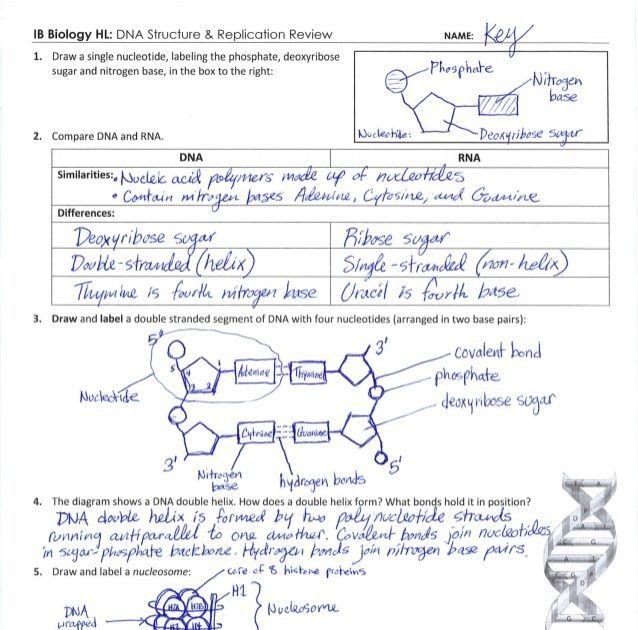 IB Biology HL: DNA Structure & Replication Review NAME: Key
1. Draw a single nucleotide, labeling the phosphate, deoxyribose
sugar and nitrogen base, in the box to the right:
Phosphate
Nitrogen
base
Nucleotide:
Deoxyribose sugar
2. Compare DNA and RNA.
DNA RNA
Similarities: • Nucleic acid polymers made up of nucleotides
• Contain nitrogen bases Adenine, Cytosine, and Guanine
Differences:
Deoxyribose sugar Ribose sugar
Double-stranded (helix) Single-stranded (non-helix)
Thymine is fourth nitrogen base Uracil is fourth base
3. Draw and label a double stranded segment of DNA with four nucleotides (arranged in two base pairs):
5'
3'
covalent bond
5 4
Adenine Thymine
phosphate
Nucleotide
deoxyribose sugar
Cytosine Guanine
3'
5'
Nitrogen
base
hydrogen bonds
4. The diagram shows a DNA double helix. How does a double helix form? What bonds hold it in position?
DNA double helix is formed by two polynucleotide strands
running antiparallel to one another. Covalent bonds join nucleotides
in sugar-phosphate backbone. Hydrogen bonds join nitrogen base pairs.
5. Draw and label a nucleosome:
core of 8 histone proteins
H1
DNA
wrapped
H2A H2B
Nucleosome